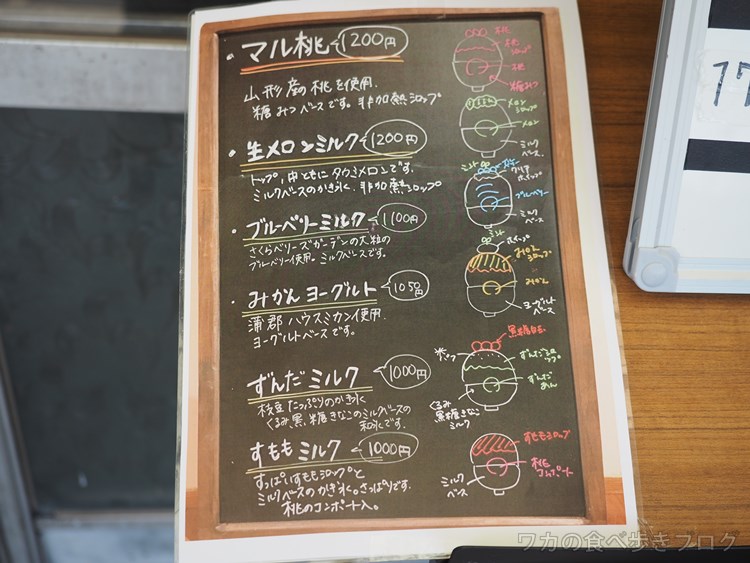 ・マル桃 1200円
山形産の桃を使用.
糖みつベースです。非加熱シロップ
桃
桃シロップ
桃
糖みつ
・生メロンミルク 1200円
トップ,中ともにタカミメロンです.
ミルクベースのかき氷.非加熱シロップ
メロンシロップ
メロン
ミルクベース.
・ブルーベリーミルク 1100円
さくらベリーズガーデンの大粒の
ブルーベリー使用。ミルクベースです。
ミント
ホイップ
ブルーベリー
ミルクベース
・みかんヨーグルト 1050円
蒲郡ハウスミカン使用.
ヨーグルトベースです。
ミント
ホイップ
みかんシロップ
みかん
ヨーグルトベース
・ずんだミルク 1000円
枝豆たっぷりのかき氷
くるみ,黒糖きなこのミルクベースの
和氷です.
ずんだシロップ
ずんだあん
くるみ
黒糖きなこ
ミルク
すももミルク 1000円
すっぱいすももシロップと
ミルクベースのかき氷。さっぱりです.
桃のコンポート入。
すももシロップ
桃コンポート
ミルクベース
ワカの食べ歩きブログ